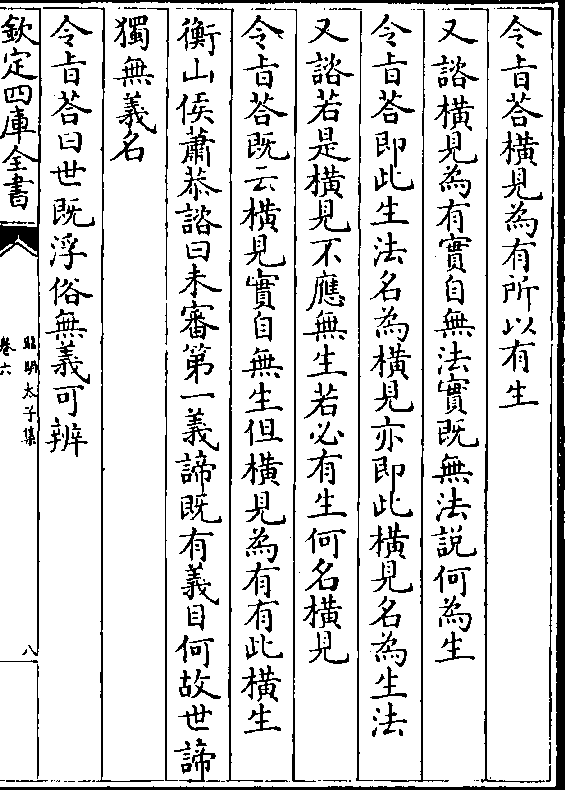 令旨荅橫見為有所以有生
又諮橫見為有實自無法實既無法說何為生
令旨荅即此生法名為橫見亦即此橫見名為生法
又諮若是橫見不應無生若必有生何名橫見
令旨荅既云橫見實自無生但橫見為有有此橫生
衡山侯蕭恭諮曰未審第一義諦既有義目何故世諦
獨無義名
令旨荅曰世既浮俗無義可辨
欽定四庫全書
昭明太子集
卷六
八